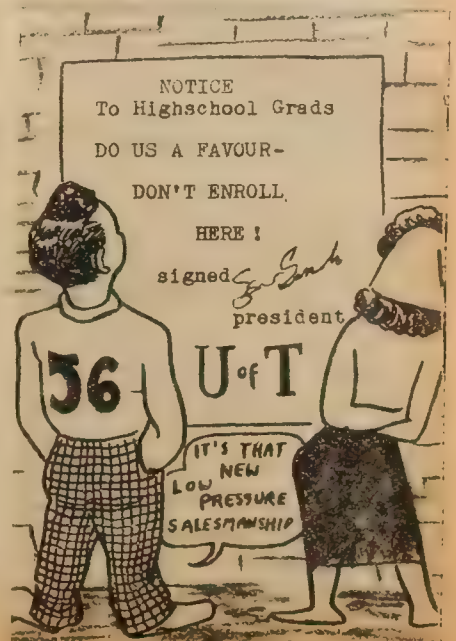 NOTICE
To Highschool Grads
DO US A FAVOUR-
DON'T ENROLL
HERE !
signed
president
U of T
56
IT'S THAT
NEW
LOW
PRESSURE
SALESMANSHIP